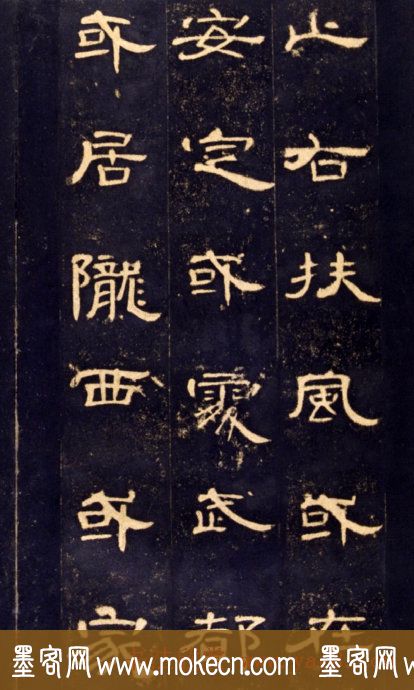 止右扶風或在
安定或處武都
或居隴西或家
墨客网 www.mokecn.com 墨客网